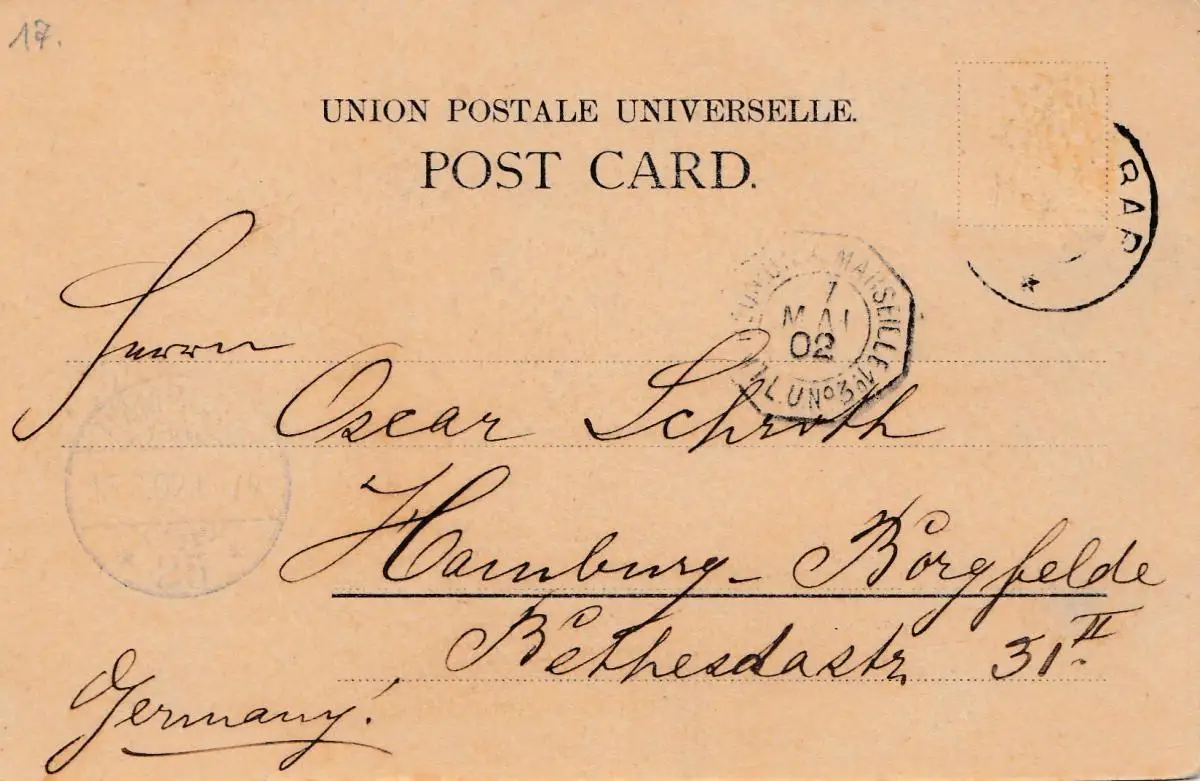 17.
UNION POSTALE UNIVERSELLE.
POST CARD.
BAR
MARSEILLE 1º
7
MAI
02
L.U Nº3
Herrn
Oscar Schroth
Hamburg-Borgfelde
Bethesdastr. 31 II.
Germany!